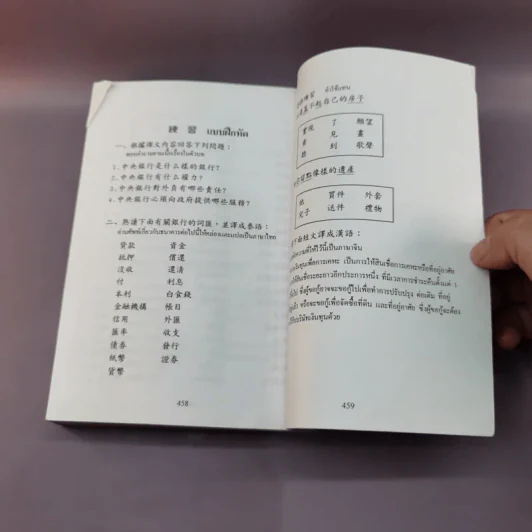 練習 แบบฝึกหัด
一、根據課文內容回答下列問題:
1.中央銀行是什么樣的銀行?
2.中央銀行有什么權力?
3.中央銀行對外負有哪些責任?
4.中央銀行必須向政府提供哪些服務?
二、熟讀下面有關銀行的詞匯,並譯成泰語:
อ่านศัพท์เกี่ยวกับธนาคารต่อไปนี้ให้คล่องและแปลเป็นภาษาไทย
貸款 資金
抵押 償還
沒收 還清
付 利息
本利 白食錢
金融機構 帳目
信用 外匯
匯率 收支
債券 發行
紙幣 證券
貨幣
458
自己的房子
實現 了 願望
看 見 畫
聽 到 歌聲
點像樣的遺產
他 買件 外套
父子 送件 禮物
下面短文譯成漢語:
ความที่ให้ไว้นี้เป็นภาษาจีน
เงินกู้เพื่อการเคหะ เป็นการให้สินเชื่อการเคหะหรือที่อยู่อาศัย
ให้สินเชื่อระยะยาวอีกประการหนึ่ง ที่มีเวลาการชำระคืนตั้งแต่
ซึ่งผู้ขอกู้อาจจะขอกู้ไปเพื่อทำการปรับปรุง ต่อเติม ที่อยู่
หรือจะขอกู้เพื่อจัดซื้อที่ดิน และที่อยู่อาศัย ซึ่งผู้ขอกู้จะต้อง
459